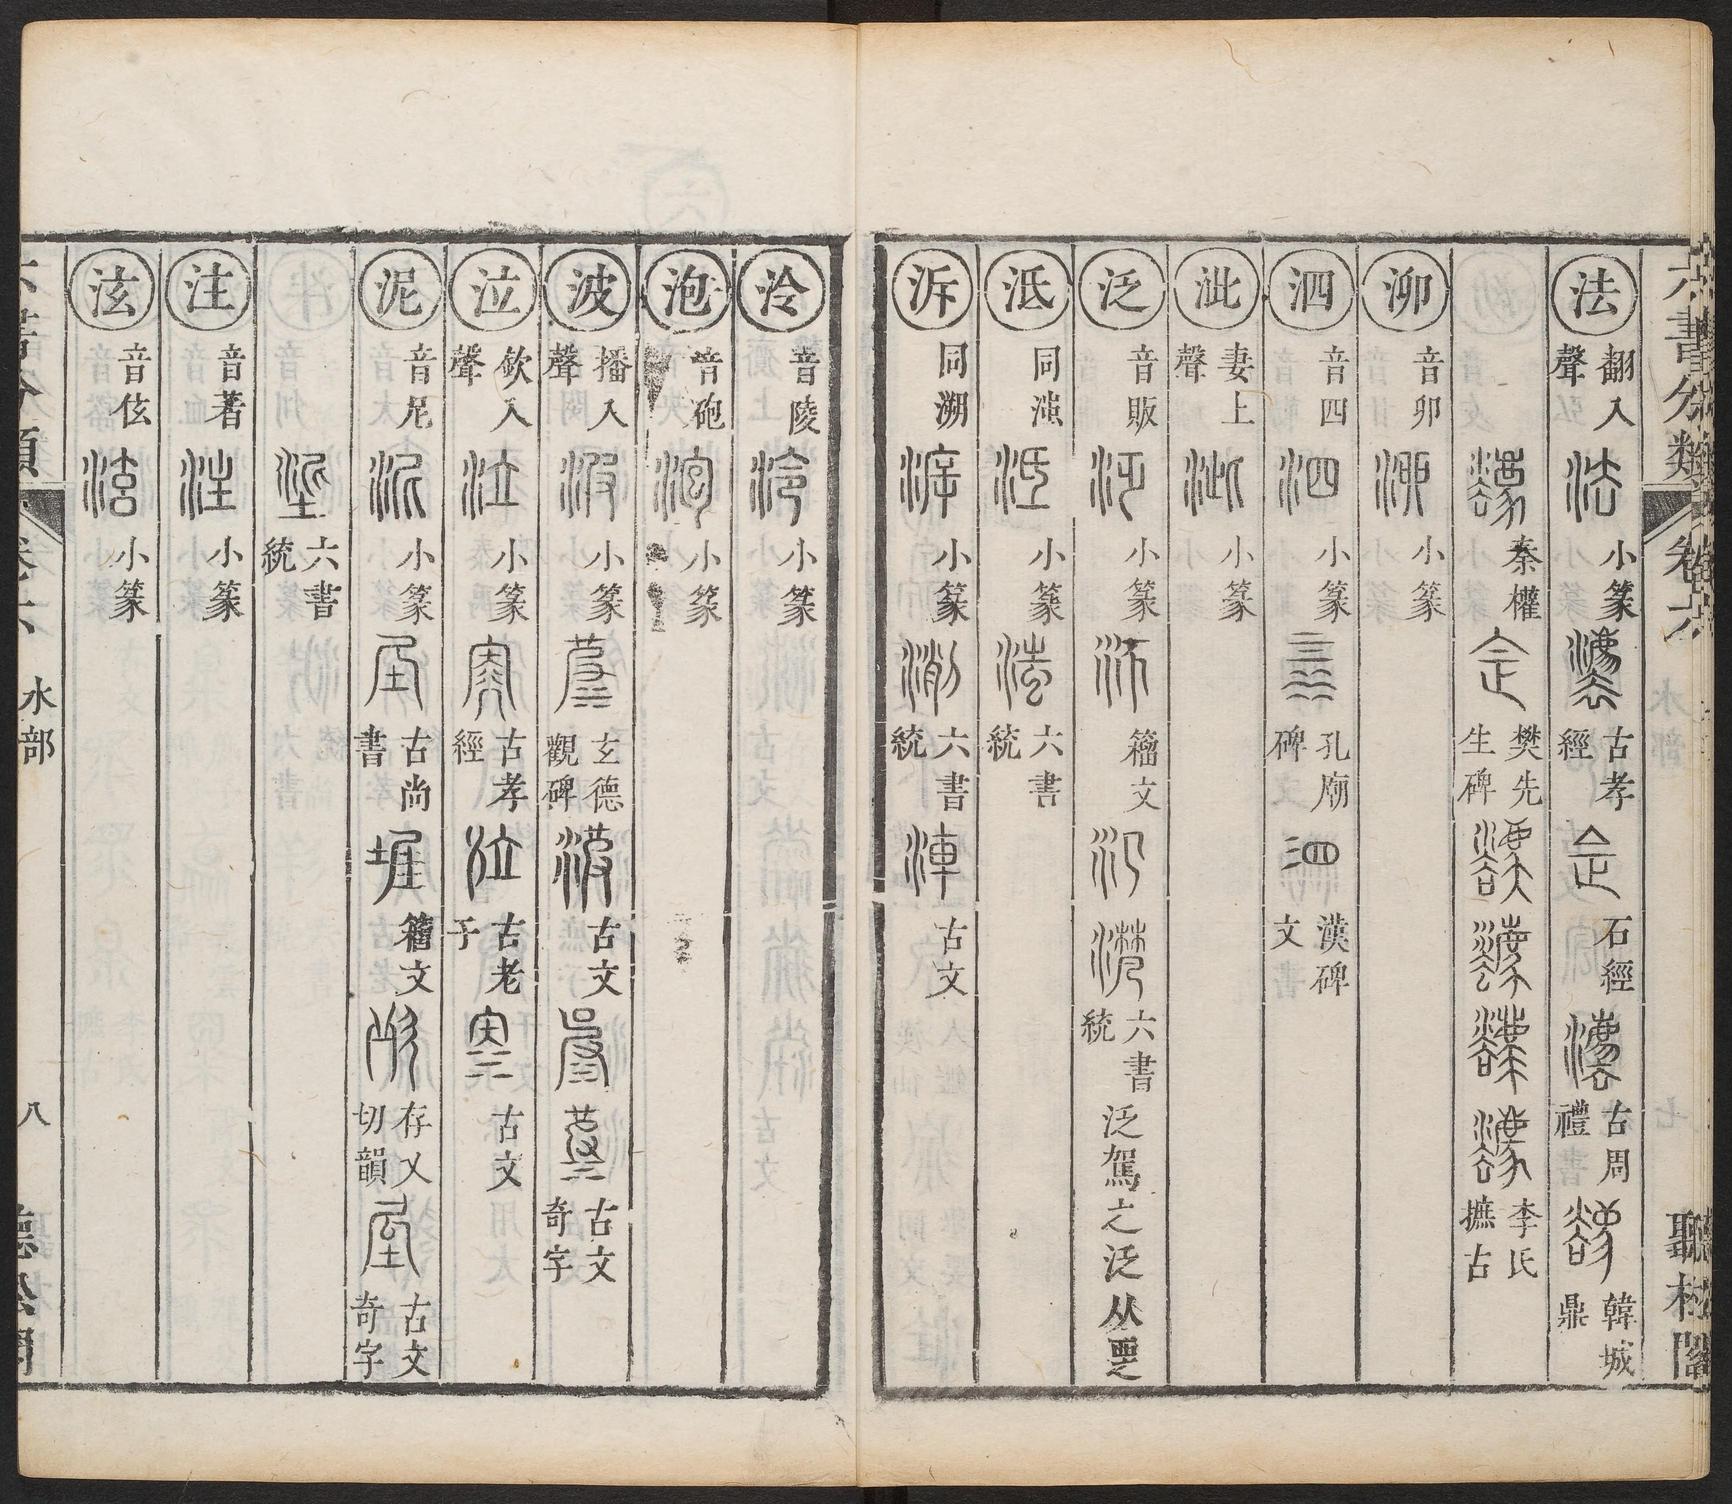 六書分類 卷六 聽松閣
法 翻入聲 小篆 古孝經 石經 古周禮 韓城鼎
秦權 樊先生碑 李氏摭古
泖 音卯 小篆
泗 音四 小篆 孔廟碑 漢碑文
泚 妻上聲 小篆
泛 音販 小篆 籀文 六書統 泛駕之泛从覂
泜 同滍 小篆 六書統
泝 同溯 小篆 六書統 古文
泠 音陵 小篆
泡 音砲 小篆
波 播入聲 小篆 玄德觀碑 古文 古文奇字
泣 欽入聲 小篆 古孝經 古老子 古文
泥 音尼 小篆 古尚書 籀文 存乂切韻 古文奇字
六書統
注 音著 小篆
泫 音伭 小篆
水部 八